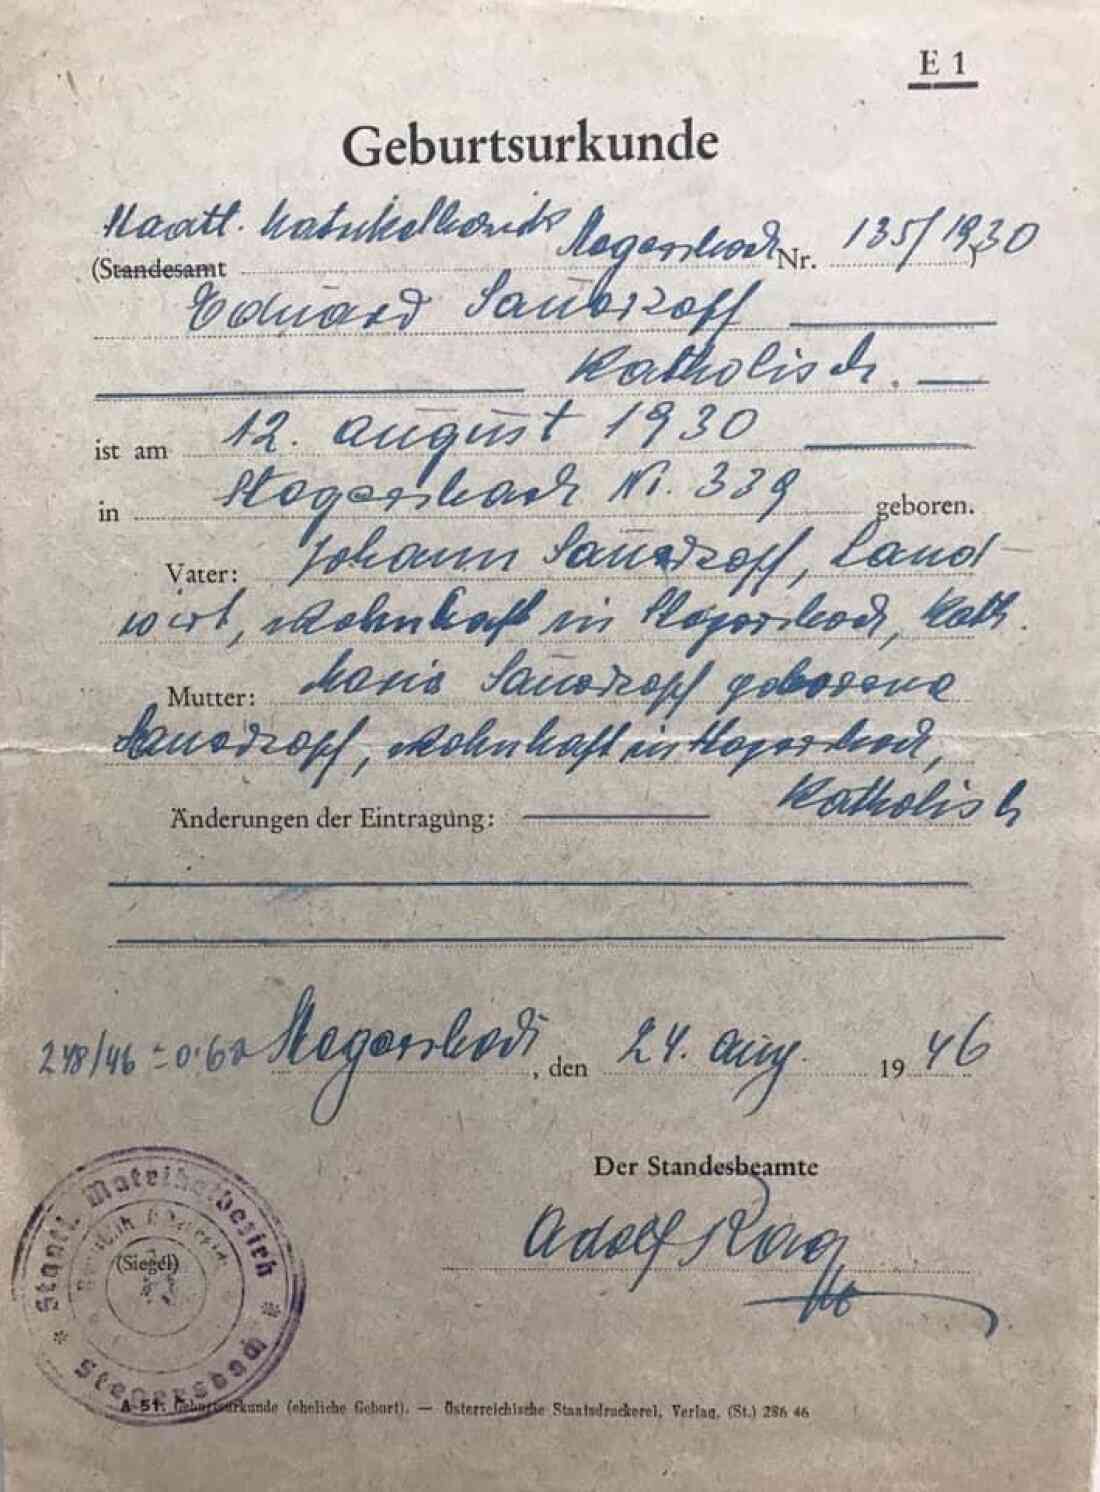 E 1
Geburtsurkunde
Staatl. Matrikelbezirk Stegersbach Nr. 135/1930
(Standesamt
Eduard Sauerzopf
Katholisch.
ist am 12. August 1930
in Stegersbach Nr. 339 geboren.
Vater: Johann Sauerzopf, Land-
wirt, wohnhaft in Stegersbach, Kath.
Mutter: Maria Sauerzopf geborene
Sauerzopf, wohnhaft in Stegersbach,
Katholisch
Änderungen der Eintragung:
248/46 = 0.60 Stegersbach, den 24. Aug. 1946
Der Standesbeamte
Adolf
Staatl. Matrikelbezirk * Stegersbach *
Republik Österreich
(Siegel)
A 51. Geburtsurkunde (eheliche Geburt). — Österreichische Staatsdruckerei, Verlag. (St.) 286 46